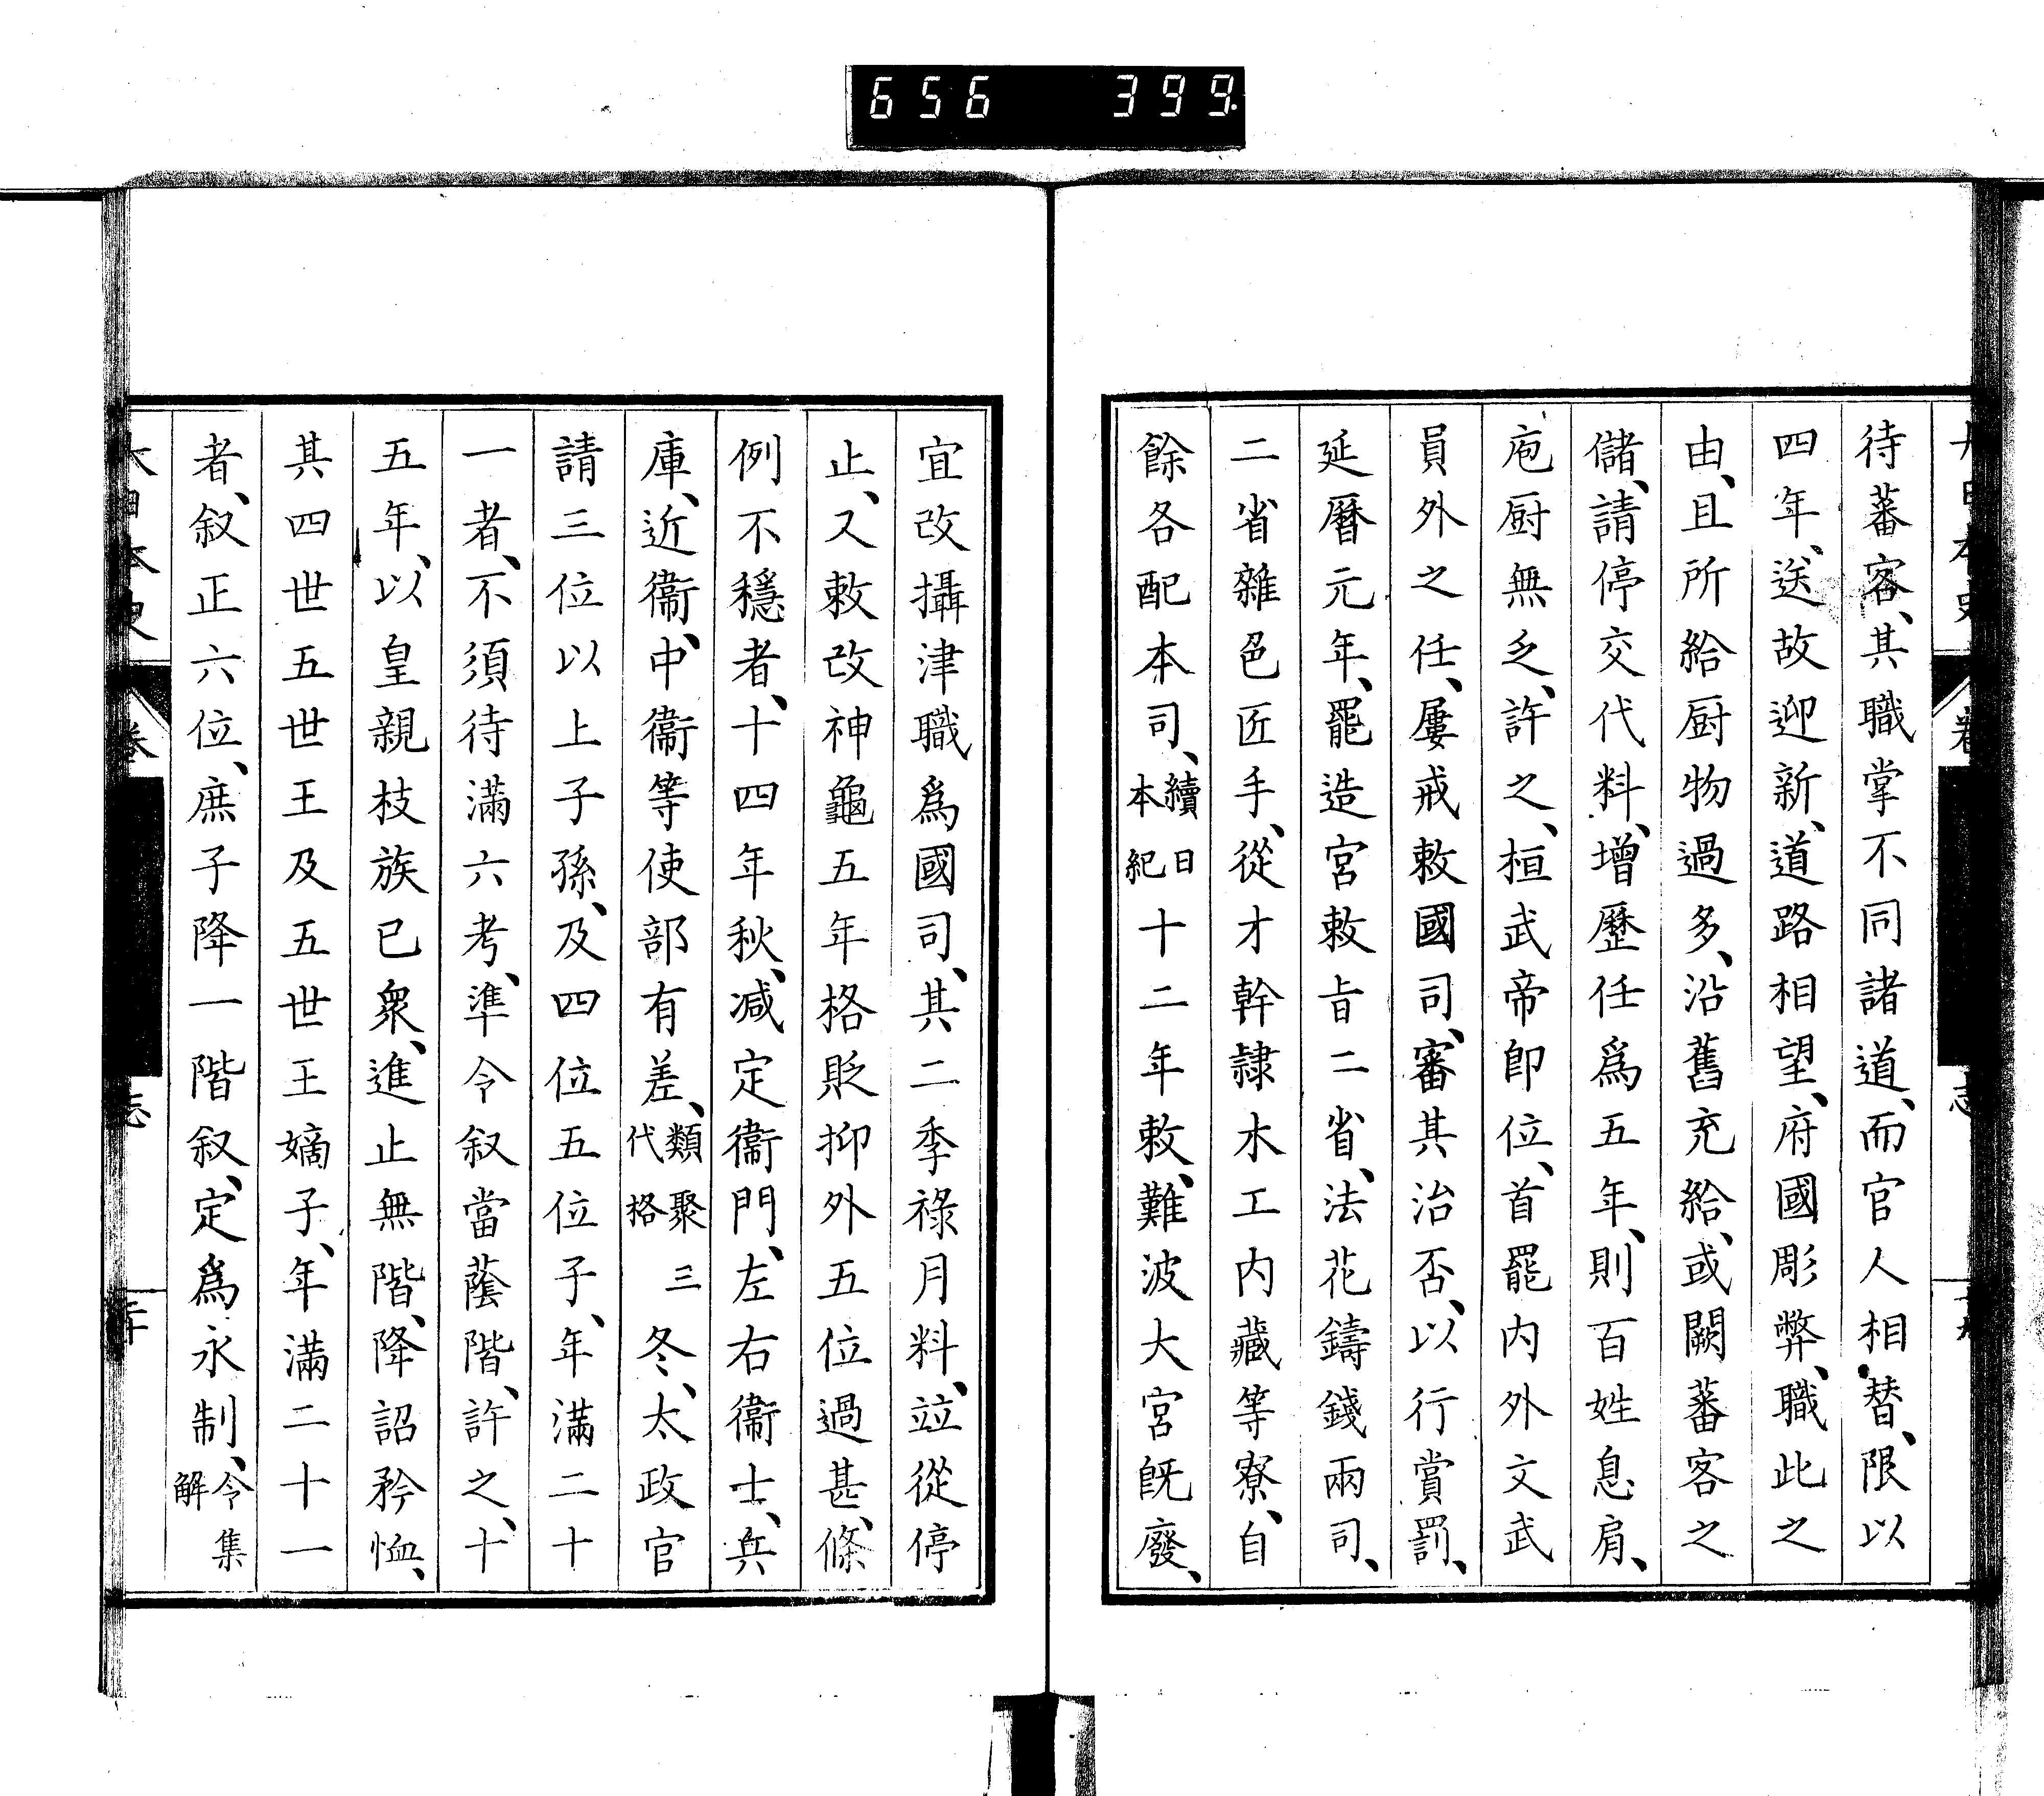 656 399.
待蕃客、其職掌不同諸道、而官人相替、限以
四年、送故迎新、道路相望、府國彫弊、職此之
由、且所給厨物過多、沿舊充給、或闕蕃客之
儲、請停交代料、增歷任爲五年、則百姓息肩、
庖厨無乏、許之、桓武帝卽位、首罷内外文武
員外之任、屢戒敕國司、審其治否、以行賞罰、
延曆元年、罷造宮敕旨二省、法花鑄錢兩司、
二省雜色匠手、從才幹隷木工内藏等寮、自
餘各配本司、續日本紀十二年敕、難波大宮旣廢、
宜改攝津職爲國司、其二季祿月料、竝從停
止、又敕改神龜五年格貶抑外五位過甚、條
例不穩者、十四年秋、减定衞門、左右衞士、兵
庫、近衞、中衞等使部有差、類聚三代格冬、太政官
請三位以上子孫、及四位五位子、年滿二十
一者、不須待滿六考、準令叙當蔭階、許之、十
五年、以皇親枝族已衆、進止無階、降詔矜恤、
其四世五世王及五世王嫡子、年滿二十一
者、叙正六位、庶子降一階叙、定爲永制、令集解
大日本史 卷 志